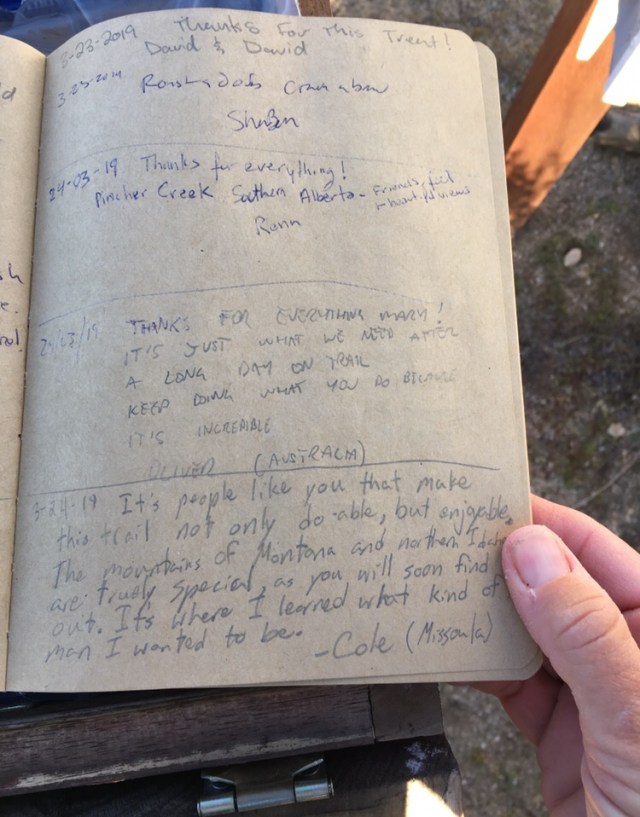 3-23-2019 Thanks For This Treat!
David & David
3-23-2019
24-03-19 Thanks for everything!
Pincher Creek Southern Alberta - Friends, food
+ beautiful views
Ronn
THANKS FOR EVERYTHING MARY!
IT'S JUST WHAT WE NEED AFTER
A LONG DAY ON TRAIL
KEEP DOING WHAT YOU DO BECAUSE
IT'S INCREDIBLE
OLIVER (AUSTRALIA)
3-24-19 It's people like you that make
this trail not only do-able, but enjoyable.
The mountains of Montana and northern Idaho
are truely special, as you will soon find
out. It's where I learned what kind of
man I wanted to be.
-Cole (Missoula)